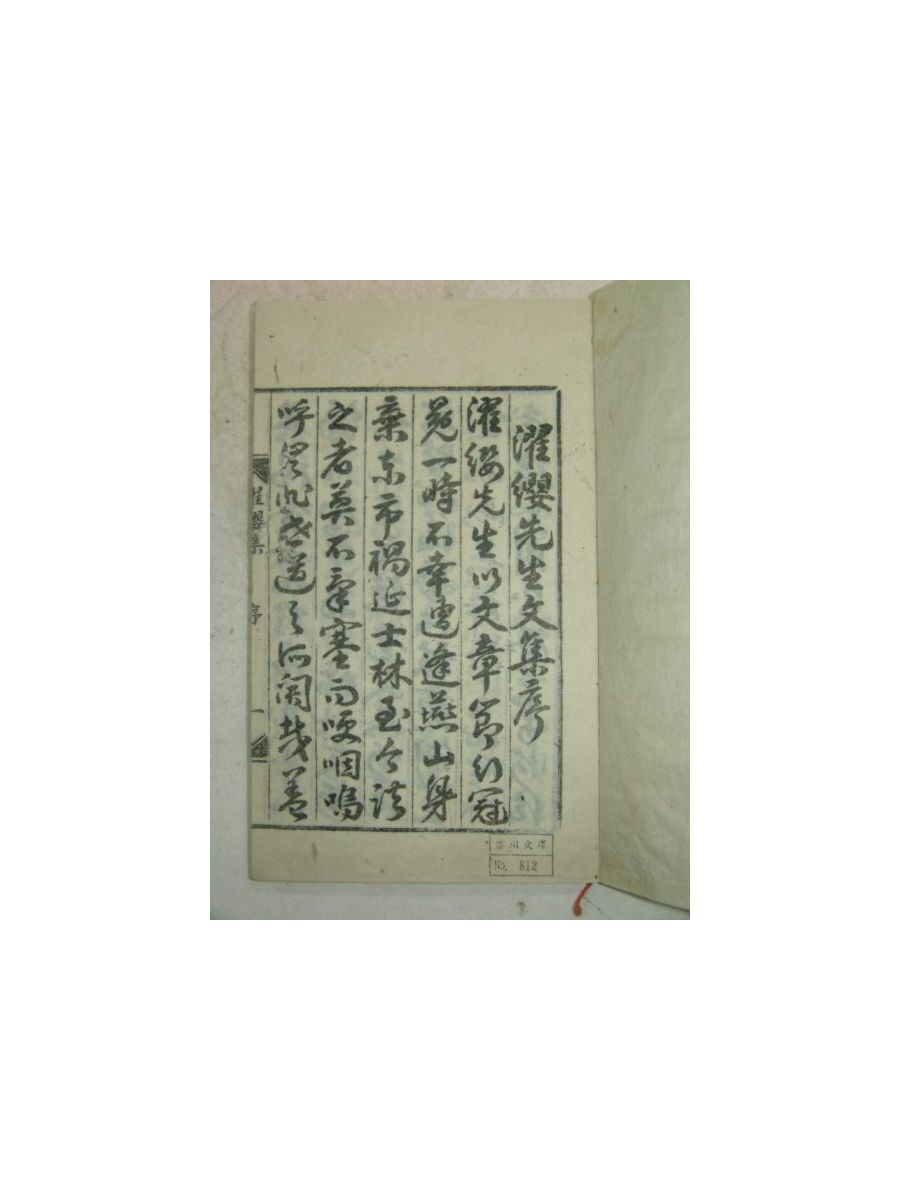 濯纓先生文集序
濯纓先生以文章節行冠
冕一時不幸遭逢燕山身
棄東市禍延士林至今談
之者莫不氣塞而哽咽嗚
呼豈非世道之所關哉蓋
濯纓集 序 一
川文庫
No. 812